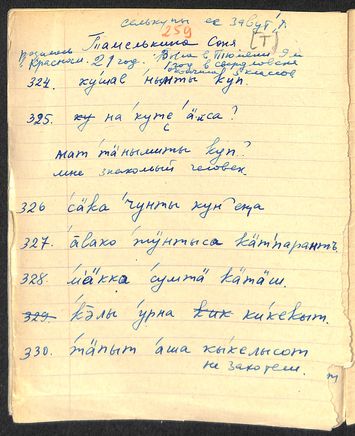 селькупы ее зовут
259 [Т]
Тамелькина Соня.
г. Красном. 21 год. Была в Тюмени 9 м
год в свердловске
окончила 5 классов
324. ку́шаӷ ны́нты куп.
325. на куте а̄са?
мат та́нымыты куп?
мне знакомый человек
326 са̄ка чунты кун еңа
327. а̄вако тӱнтыса кӓтпарантъ
328. мӓкка сумтӓ кӓтӓш.
329. кэ̄лы урна кик кикекыт.
330. тӓпыт аша кыкелысот
не захотели.